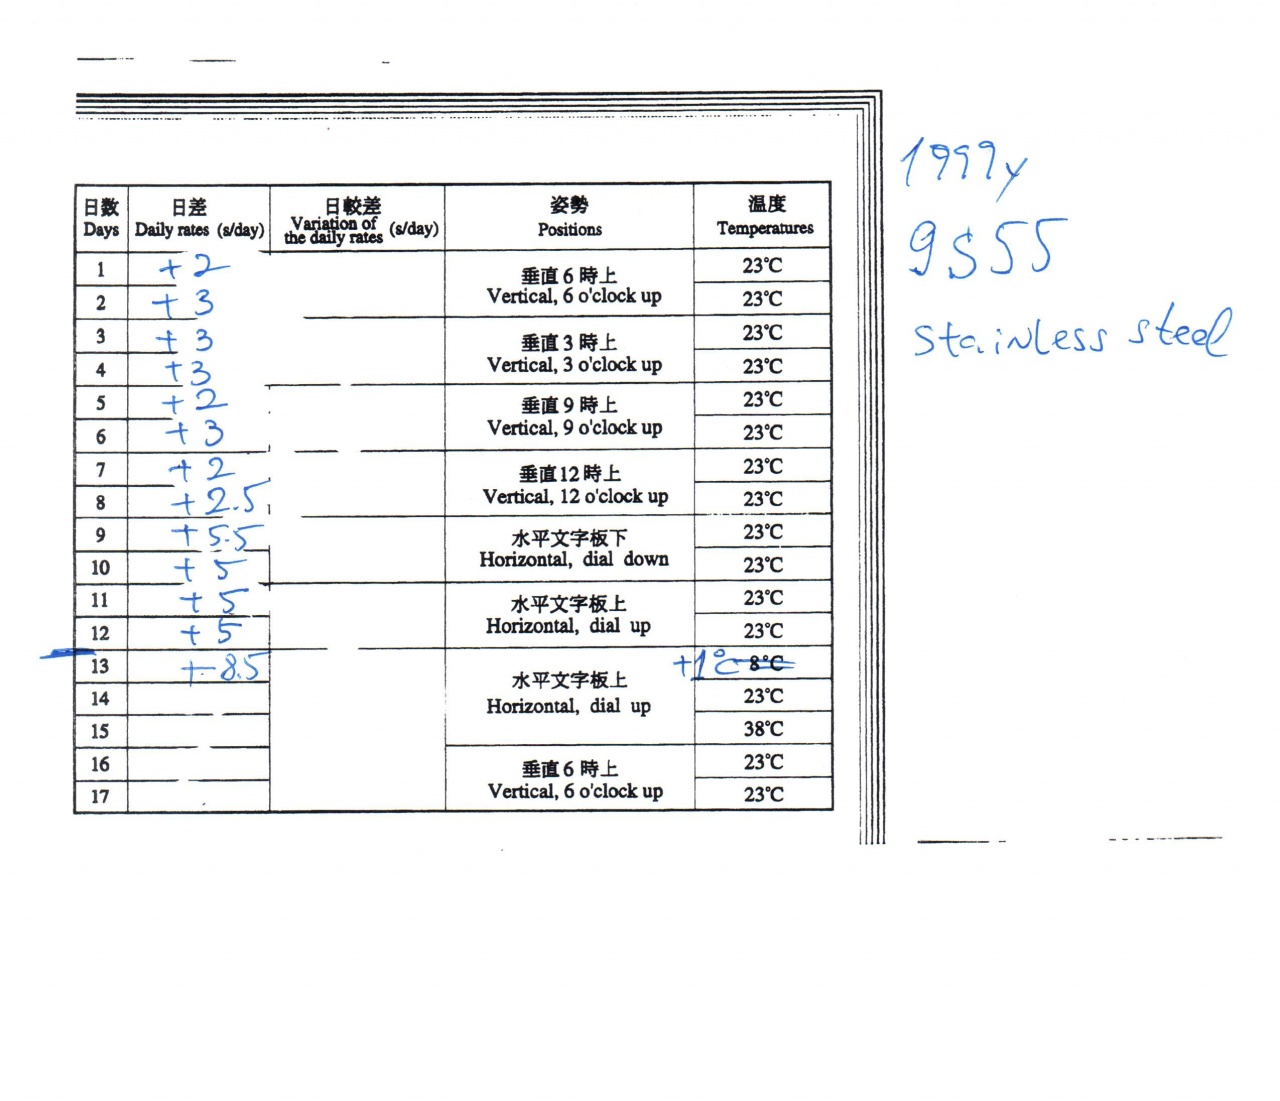 1999y
9S55
stainless steel
日数 日差 日較差 姿勢 温度
Days Daily rates (s/day) Variation of the daily rates (s/day) Positions Temperatures
1 +2 垂直6時上 23℃
2 +3 Vertical, 6 o'clock up 23℃
3 +3 垂直3時上 23℃
4 +3 Vertical, 3 o'clock up 23℃
5 +2 垂直9時上 23℃
6 +3 Vertical, 9 o'clock up 23℃
7 +2 垂直12時上 23℃
8 +2.5 Vertical, 12 o'clock up 23℃
9 +5.5 水平文字板下 23℃
10 +5 Horizontal, dial down 23℃
11 +5 水平文字板上 23℃
12 +5 Horizontal, dial up 23℃
13 +8.5 水平文字板上 +1℃ 8℃
14 Horizontal, dial up 23℃
15 38℃
16 垂直6時上 23℃
17 Vertical, 6 o'clock up 23℃